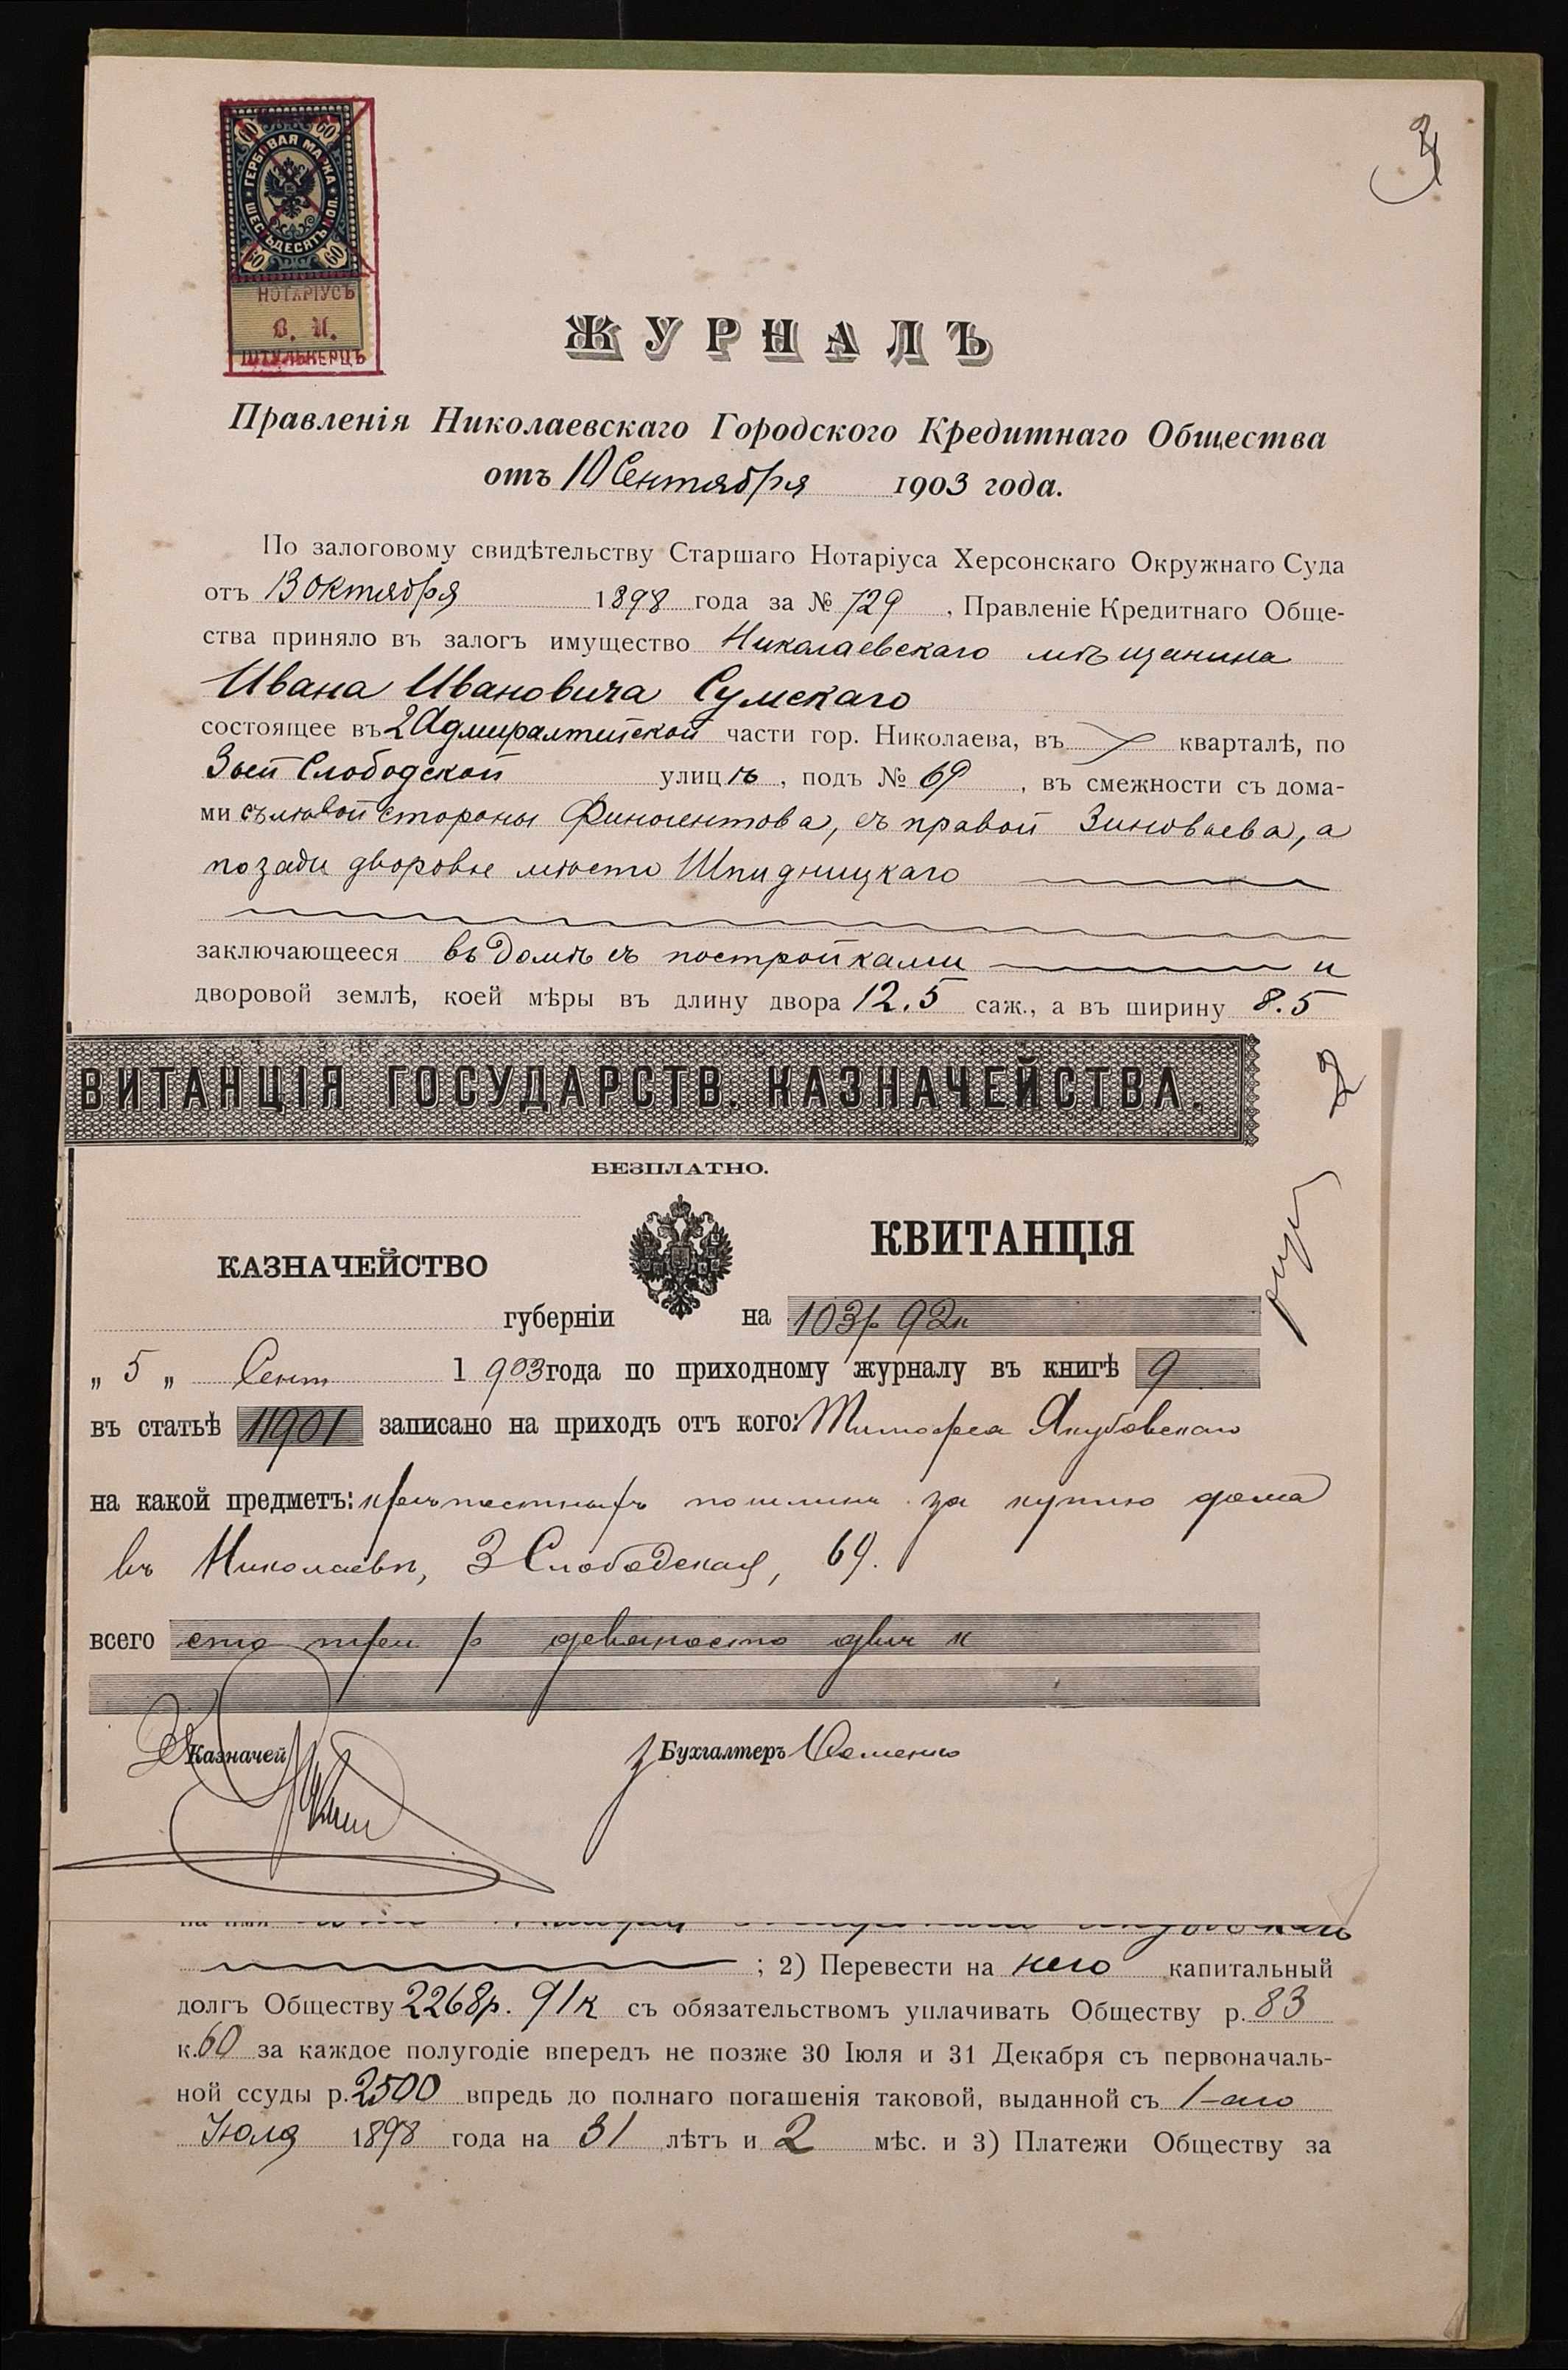 3
60 60
ГЕРБОВАЯ МАРКА
ШЕСТЬДЕСЯТЪ КОП.
60 60
НОТАРІУСЪ
В. И.
ШТУЛЬКЕРЦЪ
ЖУРНАЛЪ
Правленія Николаевскаго Городского Кредитнаго Общества
отъ 10 Сентября 1903 года.
По залоговому свидѣтельству Старшаго Нотаріуса Херсонскаго Окружнаго Суда
отъ 13 Октября 1898 года за № 729, Правленіе Кредитнаго Обще-
ства приняло въ залогъ имущество Николаевскаго мѣщанина
Ивана Ивановича Сумскаго
состоящее въ 2 Адмиралтейской части гор. Николаева, въ кварталѣ, по
3ьей Слободской улицѣ, подъ № 69, въ смежности съ дома-
ми съ лѣвой стороны Финогентова, съ правой Зиновьева, а
позади дворовое мѣсто Шпидницкаго
заключающееся въ домѣ съ постройками и
дворовой землѣ, коей мѣры въ длину двора 12.5 саж., а въ ширину 8.5
ВИТАНЦІЯ ГОСУДАРСТВ. КАЗНАЧЕЙСТВА.
2
БЕЗПЛАТНО.
КАЗНАЧЕЙСТВО
КВИТАНЦІЯ
губерніи на 103р 92к
„ 5 „ Сент 1903 года по приходному журналу въ книгѣ 9
въ статьѣ 11901 записано на приходъ отъ кого: Тимофея Якубовскаго
на какой предметъ: крѣпостныхъ пошлинъ за куплю дома
въ Николаевѣ, 3 Слободская, 69.
всего сто три р девяносто двѣ к
Казначей Бухгалтеръ
на имя
; 2) Перевести на него капитальный
долгъ Обществу 2268р. 91к съ обязательствомъ уплачивать Обществу р. 83
к. 60 за каждое полугодіе впередъ не позже 30 Іюля и 31 Декабря съ первоначаль-
ной ссуды р. 2500 впредь до полнаго погашенія таковой, выданной съ 1-аго
Іюля 1898 года на 31 лѣтъ и 2 мѣс. и 3) Платежи Обществу за